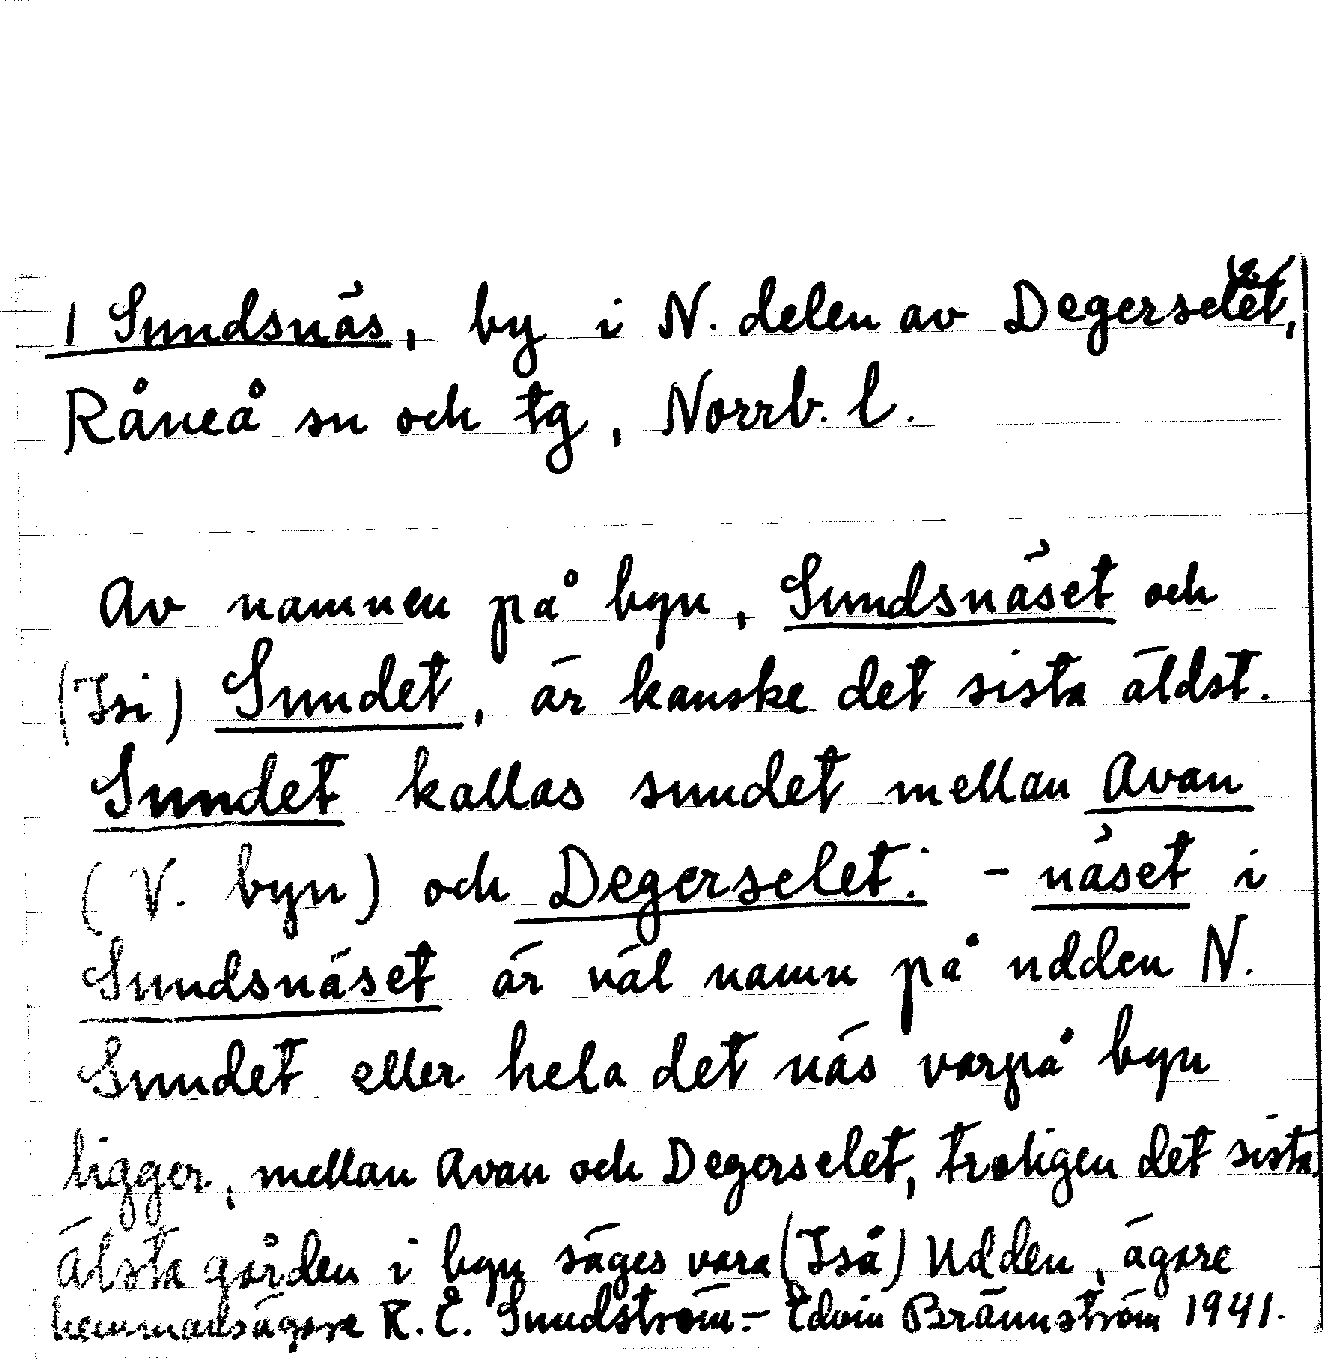 1 Sundsnäs, by i N. delen av Degerselet,
Råneå sn och tg, Norrb. l.
Av namnen på byn, Sundsnäset och
(Isi) Sundet, är kanske det sista äldst.
Sundet kallas sundet mellan Avan
(V. byn) och Degerselet: -näset i
Sundsnäset är väl namn på udden N.
Sundet eller hela det näs varpå byn
ligger, mellan Avan och Degerselet, troligen det sista
Älsta gården i byn säges vara (Iså) Udden, ägare
hemmansägare K. E. Sundström. – Edvin Brännström 1941.